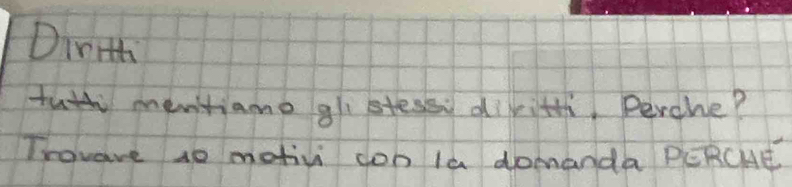 Diritti
tutti mentiamo gli stessi diritti. Perche?
Trovare 10 motivi con la domanda PERCHÉ